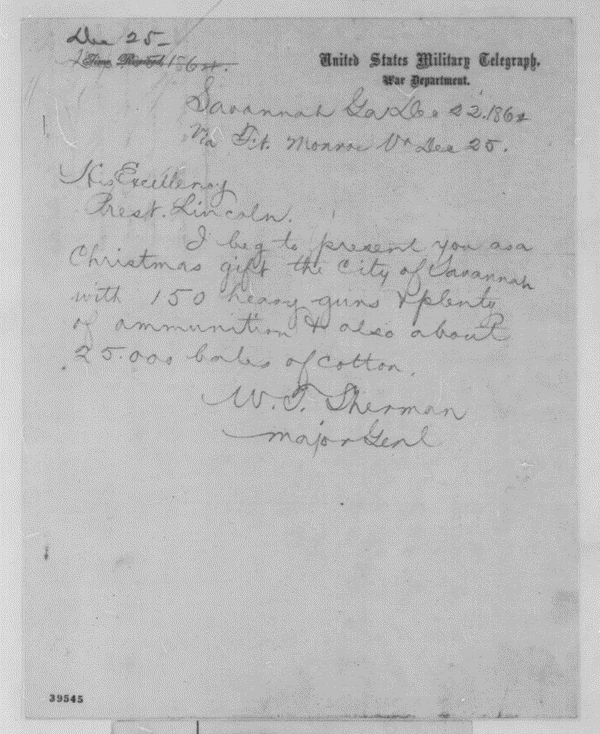 Dec 25-
Time Received 1864.
United States Military Telegraph.
War Department.
Savannah Ga Dec 22. 1864
Via Ft. Monroe Va Dec 25.
His Excellency
Prest. Lincoln.
I beg to present you as a
Christmas gift the City of Savannah
with 150 heavy guns & plenty
of ammunition & also about
25.000 bales of cotton.
W. T. Sherman
Major Genl
39545